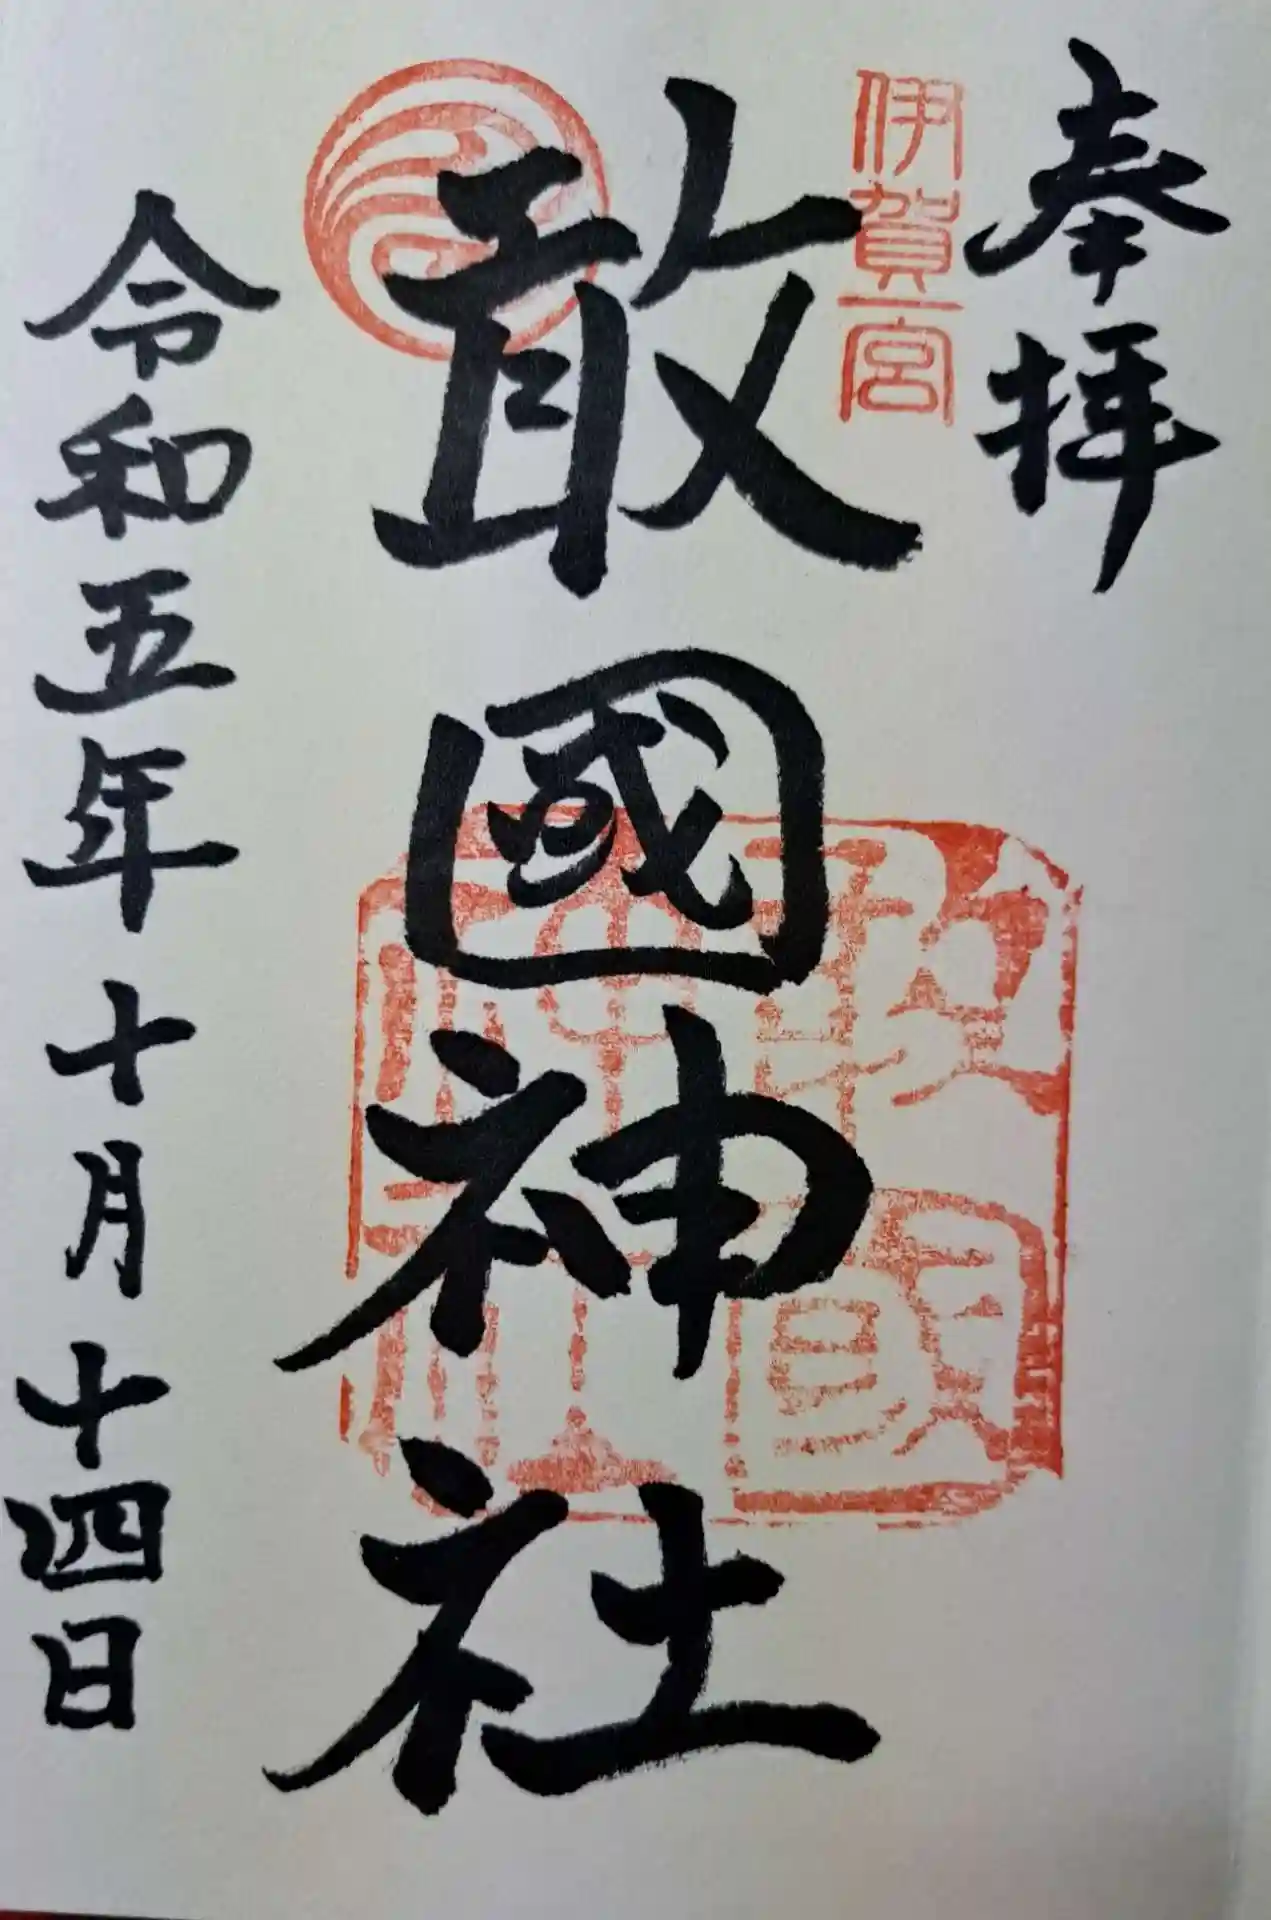 奉拝
伊賀一宮
敢國神社
敢國神社
令和五年十月十四日